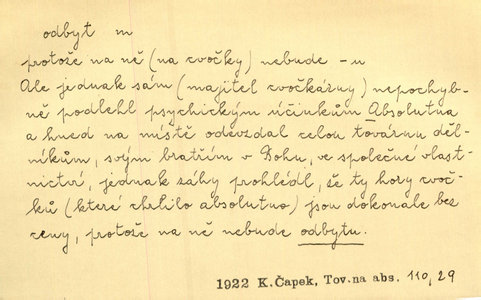 odbyt m
protože na ně (na cvočky) nebude -u
Ale jednak sám (majitel cvočkárny) nepochyb-
ně podlehl psychickým účinkům Absolutna
a hned na místě odevzdal celou továrnu děl-
níkům, svým bratřím v Bohu, ve společné vlast-
nictví, jednak záhy prohlédl, že ty hory cvoč-
ků (které chrlilo absolutno) jsou dokonale bez
ceny, protože na ně nebude odbytu.
1922 K.Čapek, Tov.na abs. 110,29